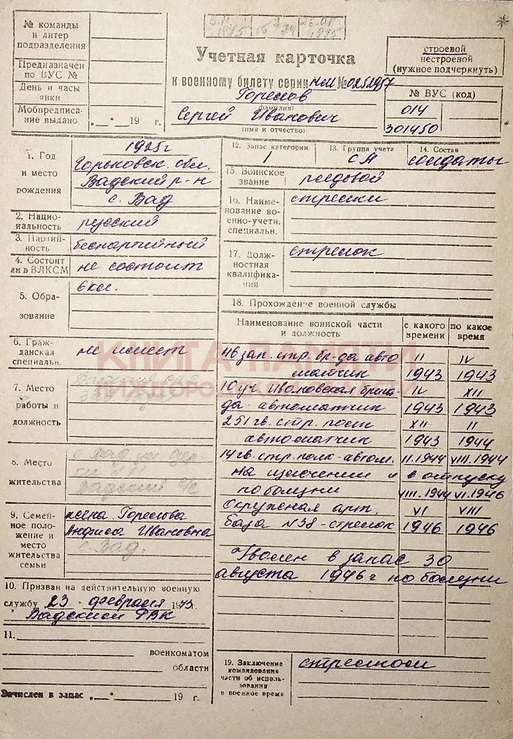 № команды
и литер
подразделения
Предназначен
по ВУС №
День и часы
явки
Мобпредписание
выдано „ “ 19 г.
Учетная карточка
к военному билету серии НМ №
(фамилия)
Сергей Иванович
(имя и отчество)
строевой
нестроевой
(нужное подчеркнуть)
№ ВУС (код)
014
301450
1. Год
и место
рождения
1925г
Горьковск. обл.
Вадский р-н
с. Вад
2. Национальность
русский
3. Партийность
беспартийный
4. Состоит
ли в ВЛКСМ
не состоит
5. Образование
6 кл.
6. Гражданская
специальн.
не имеет
7. Место
работы и
должность
8. Место
жительства
с. Вад
9. Семейное
положение и
место
жительства
семьи
жена
Ивановна
с. Вад
10. Призван на действительную военную
службу 23 февраля 1943.
Вадским РВК
11.
военкоматом
области
Зачислен в запас „ “ 19 г.
12. Запас категории
1
13. Группа учета
СА
14. Состав
солдаты
15. Воинское
звание
рядовой
16. Наименование
военно-учетн.
специальн.
стрелки
17. Должностная
квалификация
стрелок
18. Прохождение военной службы
Наименование воинской части
и должность
с какого
времени
по какое
время
46 зап. стр. бр-да авто II IV
матчик 1943 1943
10 уч. бригада IV XII
автоматчик 1943 1943
251 гв. стр. полк XII II
автоматчик 1943 1944
14 гв. стр. полк-автом. II.1944 VIII.1944
На излечении и в отпуску
по болезни VIII.1944 VI.1946
Окружная арт. VI VIII
база №38-стрелок 1946 1946
Уволен в запас 30
августа 1946г по болезни
19. Заключение
командования
части об использовании
в военное время
стрелком
КНИГА ПАМЯТИ